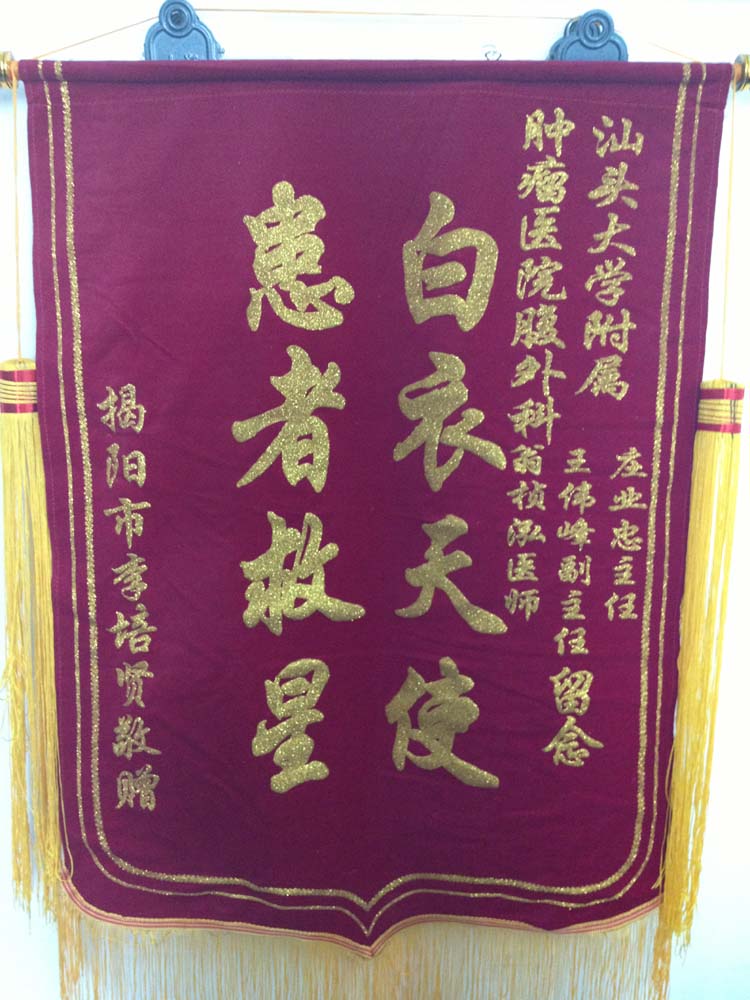 汕头大学附属
肿瘤医院腹外科
庄业忠主任
王伟峰副主任
翁桢泓医师
留念
白衣天使
患者救星
揭阳市李培贤敬赠